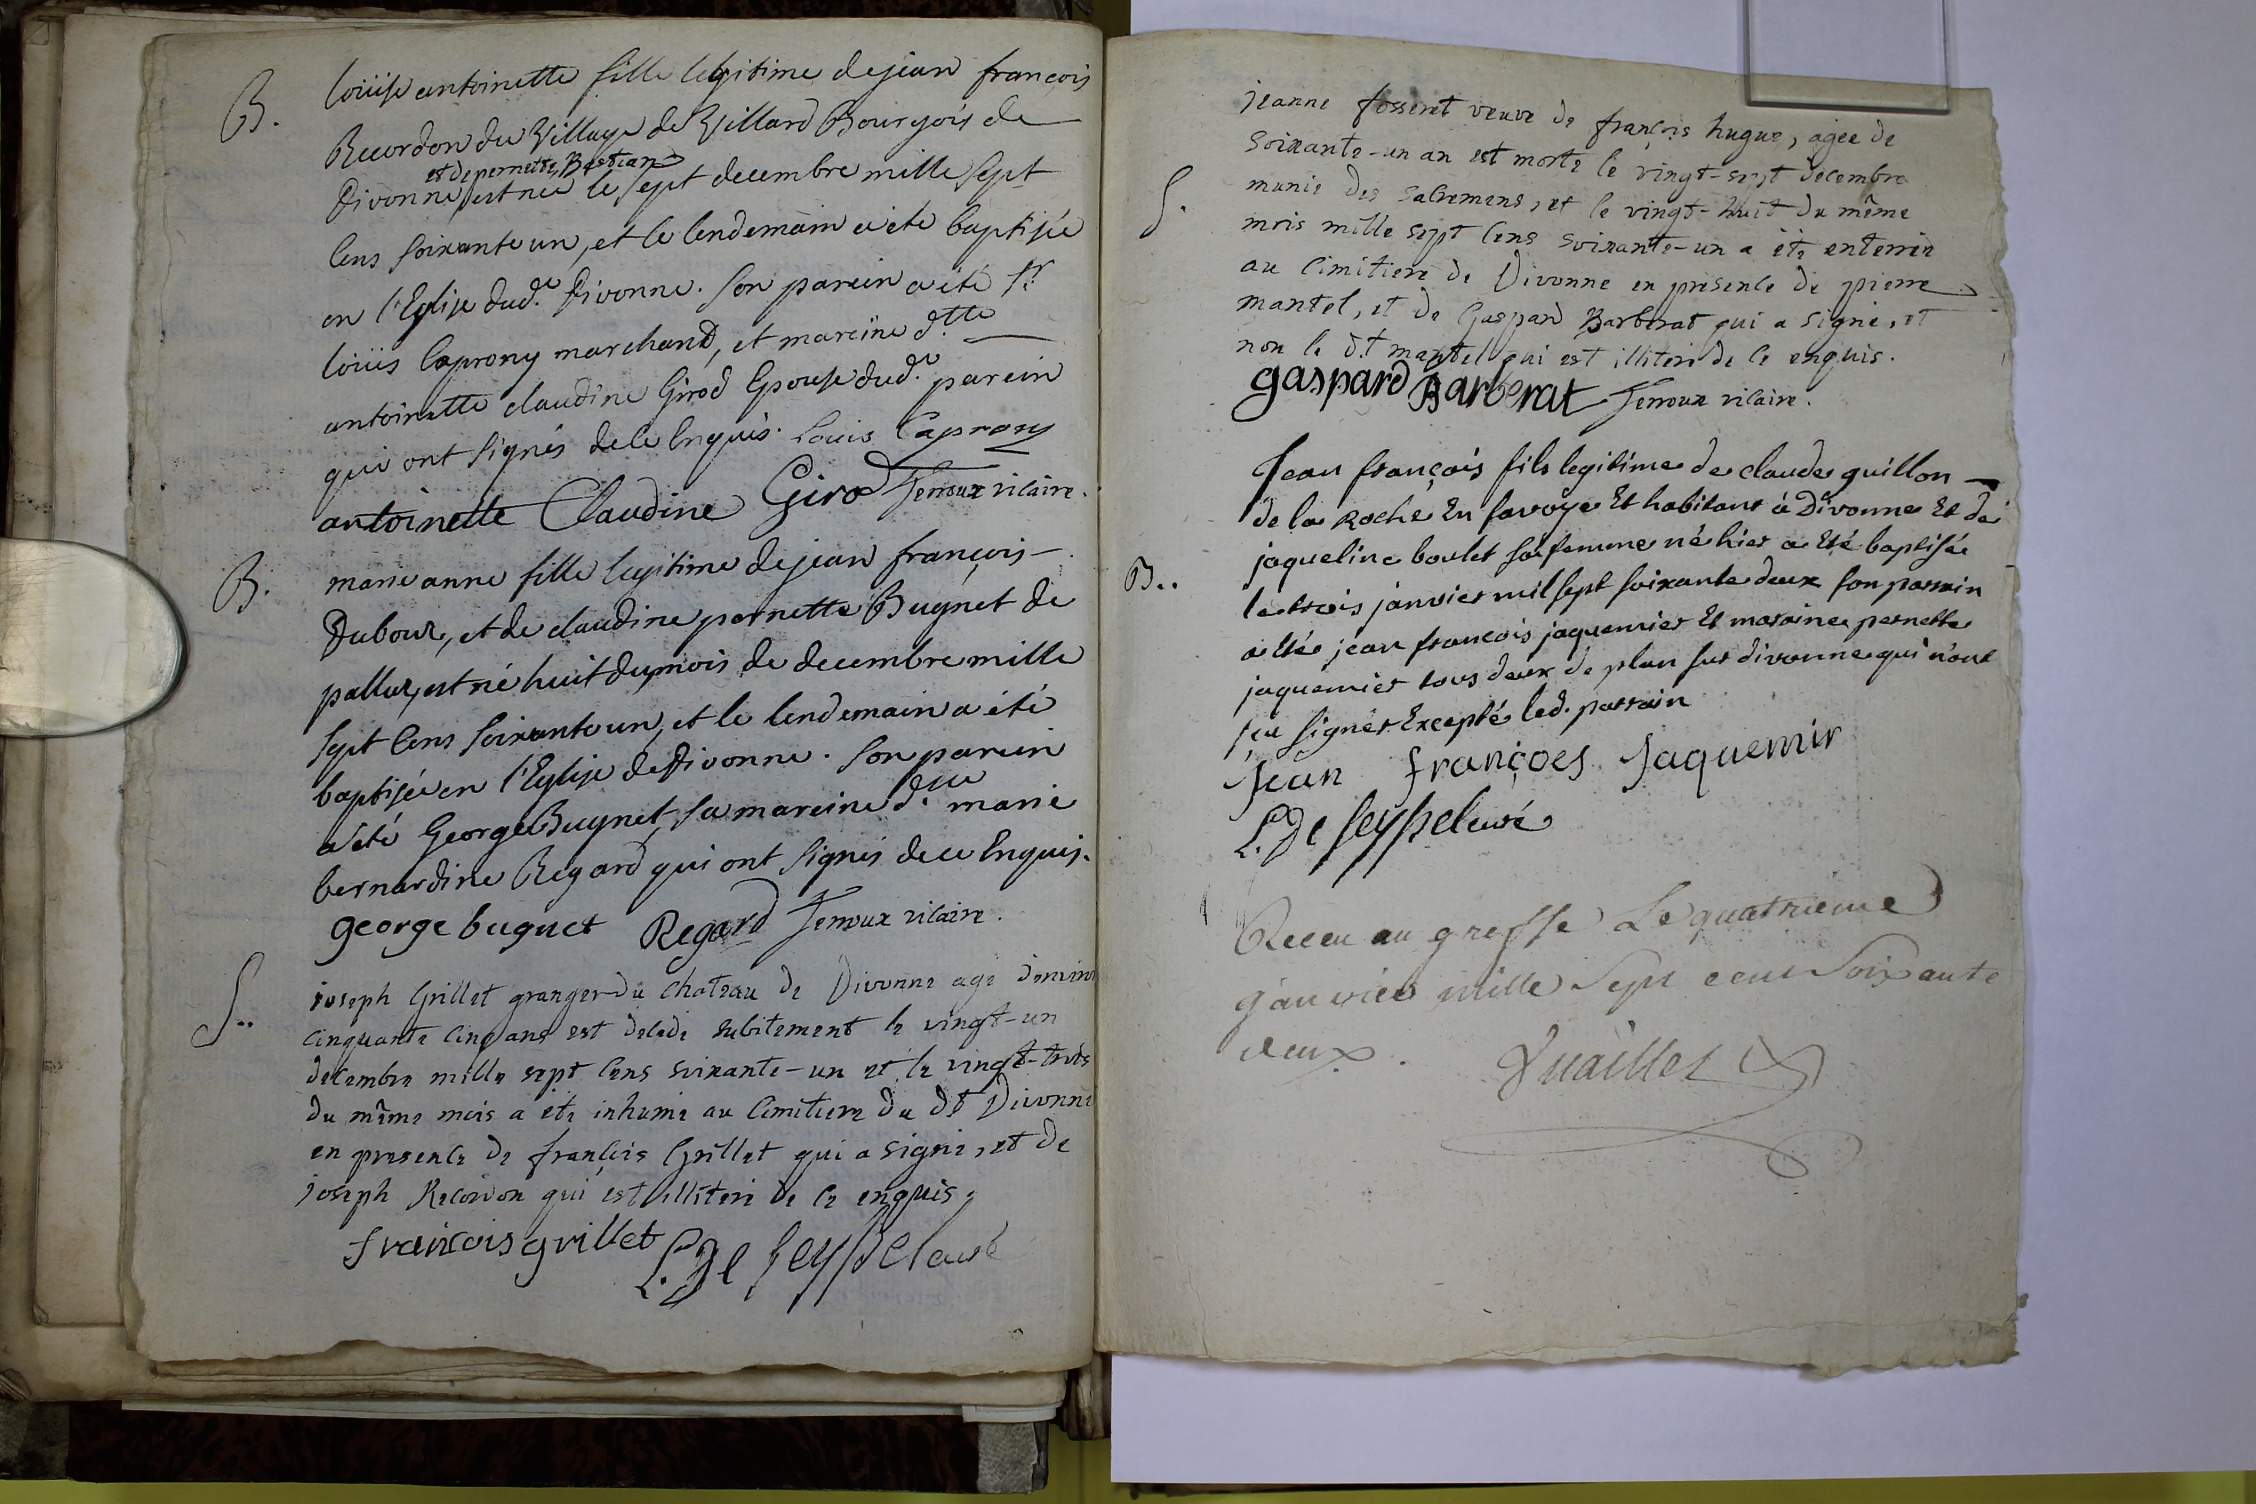 B. loüise antoinette fille legitime de jean françois
Recordon du Village de Villard Bourgois de
et de pernette Bastian
Divonne est née le sept decembre mille sept
cens soixante un, et le lendemain a été baptisée
en l'Eglise dud.e Divonne. son parein a été sr.
loüis Caprony marchand, et mareine d.tte
antoinette claudine Girod Epouse dud.e parein
qui ont signés de ce Enquis. Louis Caprony
antoinette Claudine Girod Fenoux vicaire.
B. marie anne fille legitime de jean françois
Dubour, et de claudine pernette Bugnet de
est né huit du mois de decembre mille
sept cens soixante un, et le lendemain a été
baptisée en l'Eglise de Divonne. son parein
a été George Bugnet, sa mareine d.lle marie
bernardine Regard qui ont signés de ce Enquis.
george bugnet Regard Fenoux vicaire.
S.. joseph Grillet granger du chateau de Divonne agé d'environ
cinquante cinq ans est decedé subitement le vingt-un
decembre mille sept cens soixante-un et le vingt-trois
du même mois a été inhumé au cimitiere du dt Divonne
en presence de françois Grillet qui a signé, et de
joseph Recordon qui est illiteré de ce enquis.
francois grillet L. De seyssel curé
jeanne fosseret veuve de françois hugue, agée de
soixante-un an est morte le vingt-sept decembre
S. munie des sacremens, et le vingt-huit du même
mois mille sept cens soixante-un a été enterrée
au cimitiere de Divonne en presence de pierre
mantel, et de Gaspard Barberat qui a signé, et
non le d.t mantel qui est illiteré de ce enquis.
gaspard Barberat Fenoux vicaire.
Jean françois fils legitime de claude guillon
de la Roche En savoye Et habitant à Divonne Et de
jaqueline boulet sa femme né hier a Eté baptisée
B.. le trois janvier mil sept soixante deux son parrain
a Eté jean francois jaquemier Et maraine pernette
jaquemier tous deux de plan sur divonne qui n'ont
sçu signer Excepté led. parrain
Jean françoes Jaquemir
L. De seyssel curé
Receu au greffe Le quatrieme
janvier mille sept cent soixante
deux.